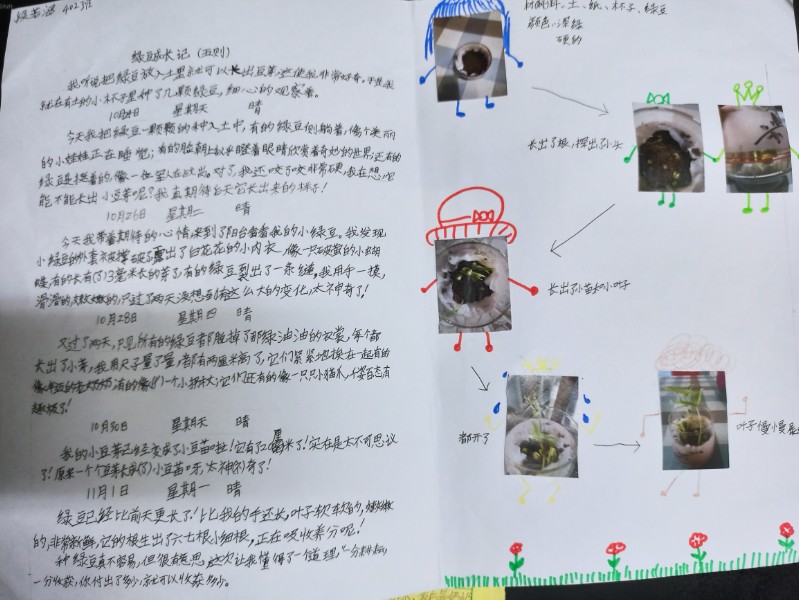 402班
绿豆成长记（五则）
我听说把绿豆放入土里就可以长出豆芽，这使我非常好奇。于是我
就在有土的小杯子里种了几颗绿豆，细心的观察着。
10月24日 星期天 晴
今天我把绿豆一颗颗的种入土中，有的绿豆侧躺着，像个美丽
的小娃娃正在睡觉；有的脸朝上似乎瞪着眼睛欣赏着奇妙的世界；还有的
绿豆是摸着的，像一位军人在站岗。对了，我还咬了咬非常硬，我在想它
能不能长出小豆芽呢？我真期待每天它长出来的样子！
10月26日 星期二 晴
今天我带着期待的心情来到了阳台看看我的小绿豆。我发现
小绿豆的外套被撑破了露出了白花花的小内衣，像一只破蛹的小蝴
蝶，有的长有了3毫米长的芽了，有的绿豆裂出了一条缝。我用手一摸，
滑滑的，嫩嫩的，只过了两天没想到有这么大的变化，太神奇了！
10月28日 星期四 晴
又过了两天，只见所有的绿豆都脱掉了那绿油油的衣裳，每个都
长出了小芽，我用尺子量了量，都有两厘米高了，它们紧紧地挨在一起有的
有的像一个小拐杖，它们还有的像一只只小猫爪，千姿百态有
趣极了！
10月30日 星期天 晴
我的小豆芽已经变成了小豆苗啦！它有了2厘米了！实在是太不可思议
了！原来一个个豆芽长成了小豆苗呀，太神奇了！
11月1日 星期一 晴
绿豆已经比前天更长了！比我的手还长，叶子软软的，嫩嫩
的，非常新鲜，它的根生出了六七根小细根，正在吸收养分呢！
种绿豆真不容易，但很有意思，这次让我懂得了一个道理，“一分耕耘，
一分收获，你付出了多少，就可以收获多少。
材料：土、纸、杯子、绿豆
颜色：深绿
硬的
长出了根，探出了小头
长出了小苗和小叶子
都开了
叶子慢慢